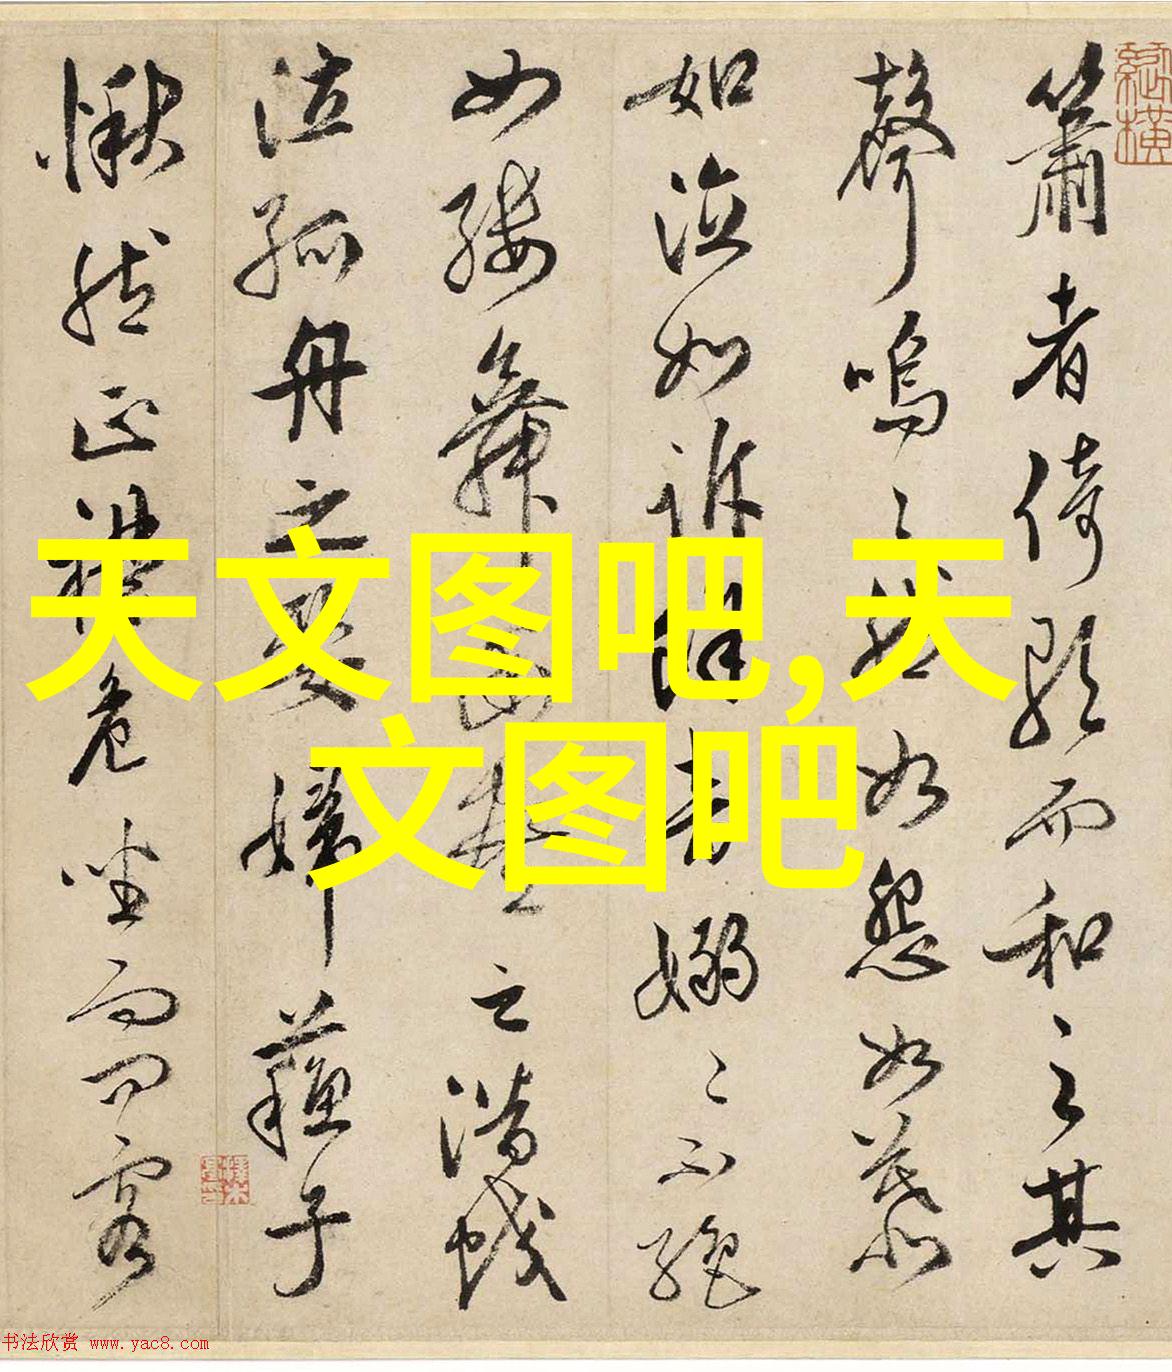 簫者倚歌而和之其
聲嗚〻然如怨如慕
如泣如訴餘音嫋〻不絕
如縷舞幽壑之潛蛟
泣孤舟之嫠婦蘇子
愀然正襟危坐而問客
天文图吧,天
文图吧
书法欣赏 www.yac8.com